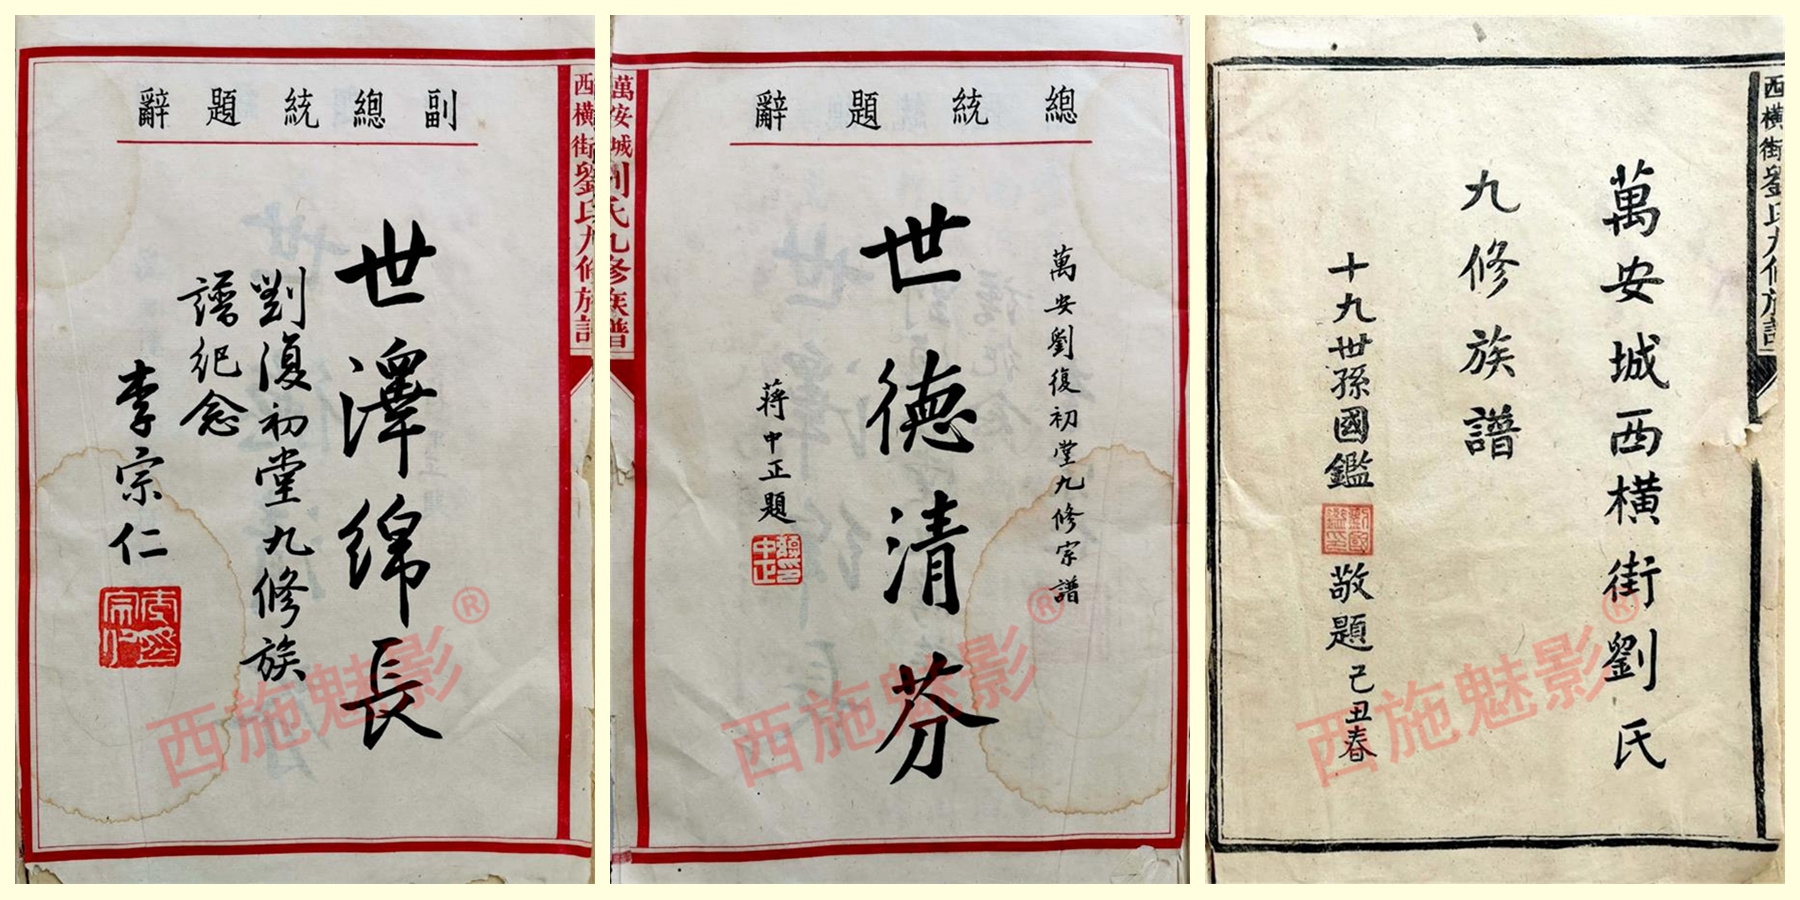 副總統題辭
世澤綿長
劉復初堂九修族
譜紀念
李宗仁
西橫街劉氏九修族譜
西施魅影®
總統題辭
萬安劉復初堂九修宗譜
世德清芬
蔣中正題
萬安城劉氏九修族譜
西施魅影®
萬安城西橫街劉氏
九修族譜
十九世孫國鑑
敬題己丑春
西橫街劉氏九修族譜
西施魅影®